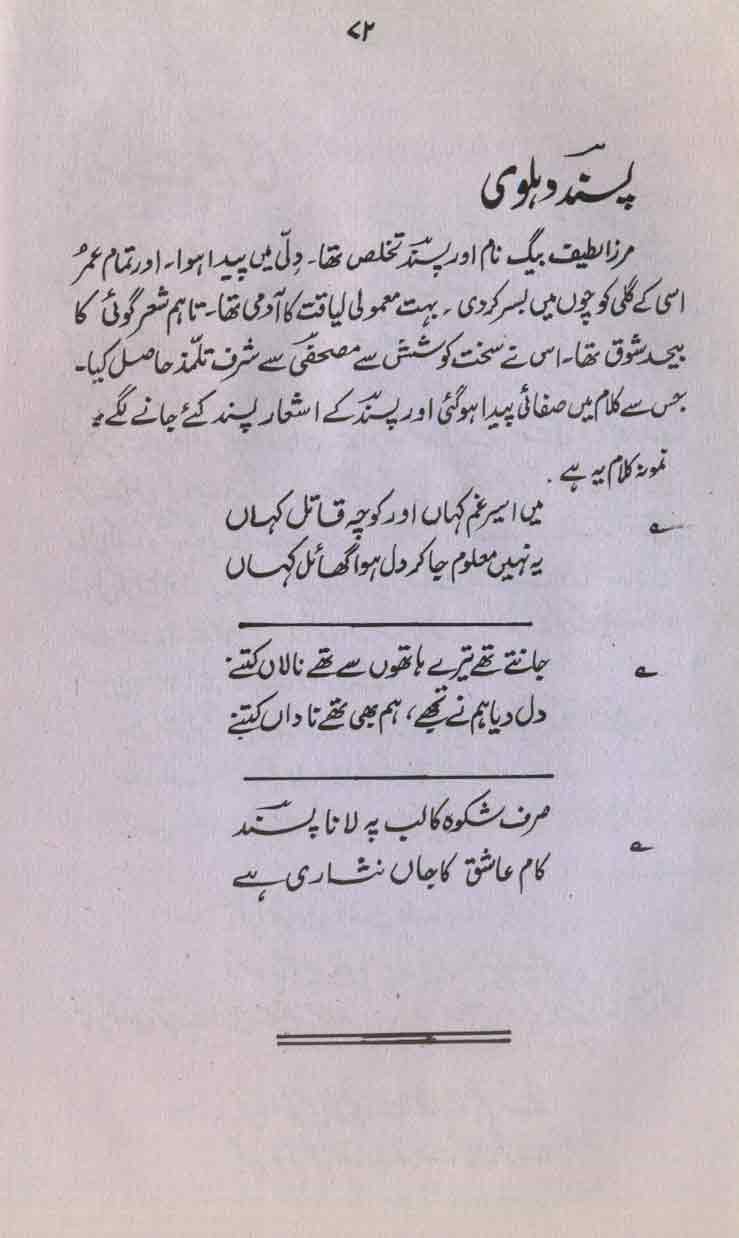 ۷۲
پسندؔ دہلوی
مرزا لطیف بیگ نام اور پسندؔ تخلص تھا۔ دِلّی میں پیدا ہوا۔ اور تمام عمر
اسی کے گلی کوچوں میں بسر کر دی۔ بہت معمولی لیاقت کا آدمی تھا۔ تاہم شعر گوئی کا
بیحد شوق تھا۔ اس نے سخت کوشش سے مصحفیؔ سے شرف تلمّذ حاصل کیا۔
جس سے کلام میں صفائی پیدا ہو گئی اور پسندؔ کے اشعار پسند کئے جانے لگے۔
نمونہ کلام یہ ہے۔
؎ میں اسیر غم کہاں اور کوچہ قاتل کہاں
یہ نہیں معلوم جا کر دل ہوا گھائل کہاں
؎ جانتے تھے تیرے ہاتھوں سے تھے نالاں کتنے
دل دیا ہم نے تجھے، ہم بھی تھے ناداں کتنے
؎ حرف شکوہ کا لب پہ لانا پسندؔ
کام عاشق کا جاں نثاری ہے